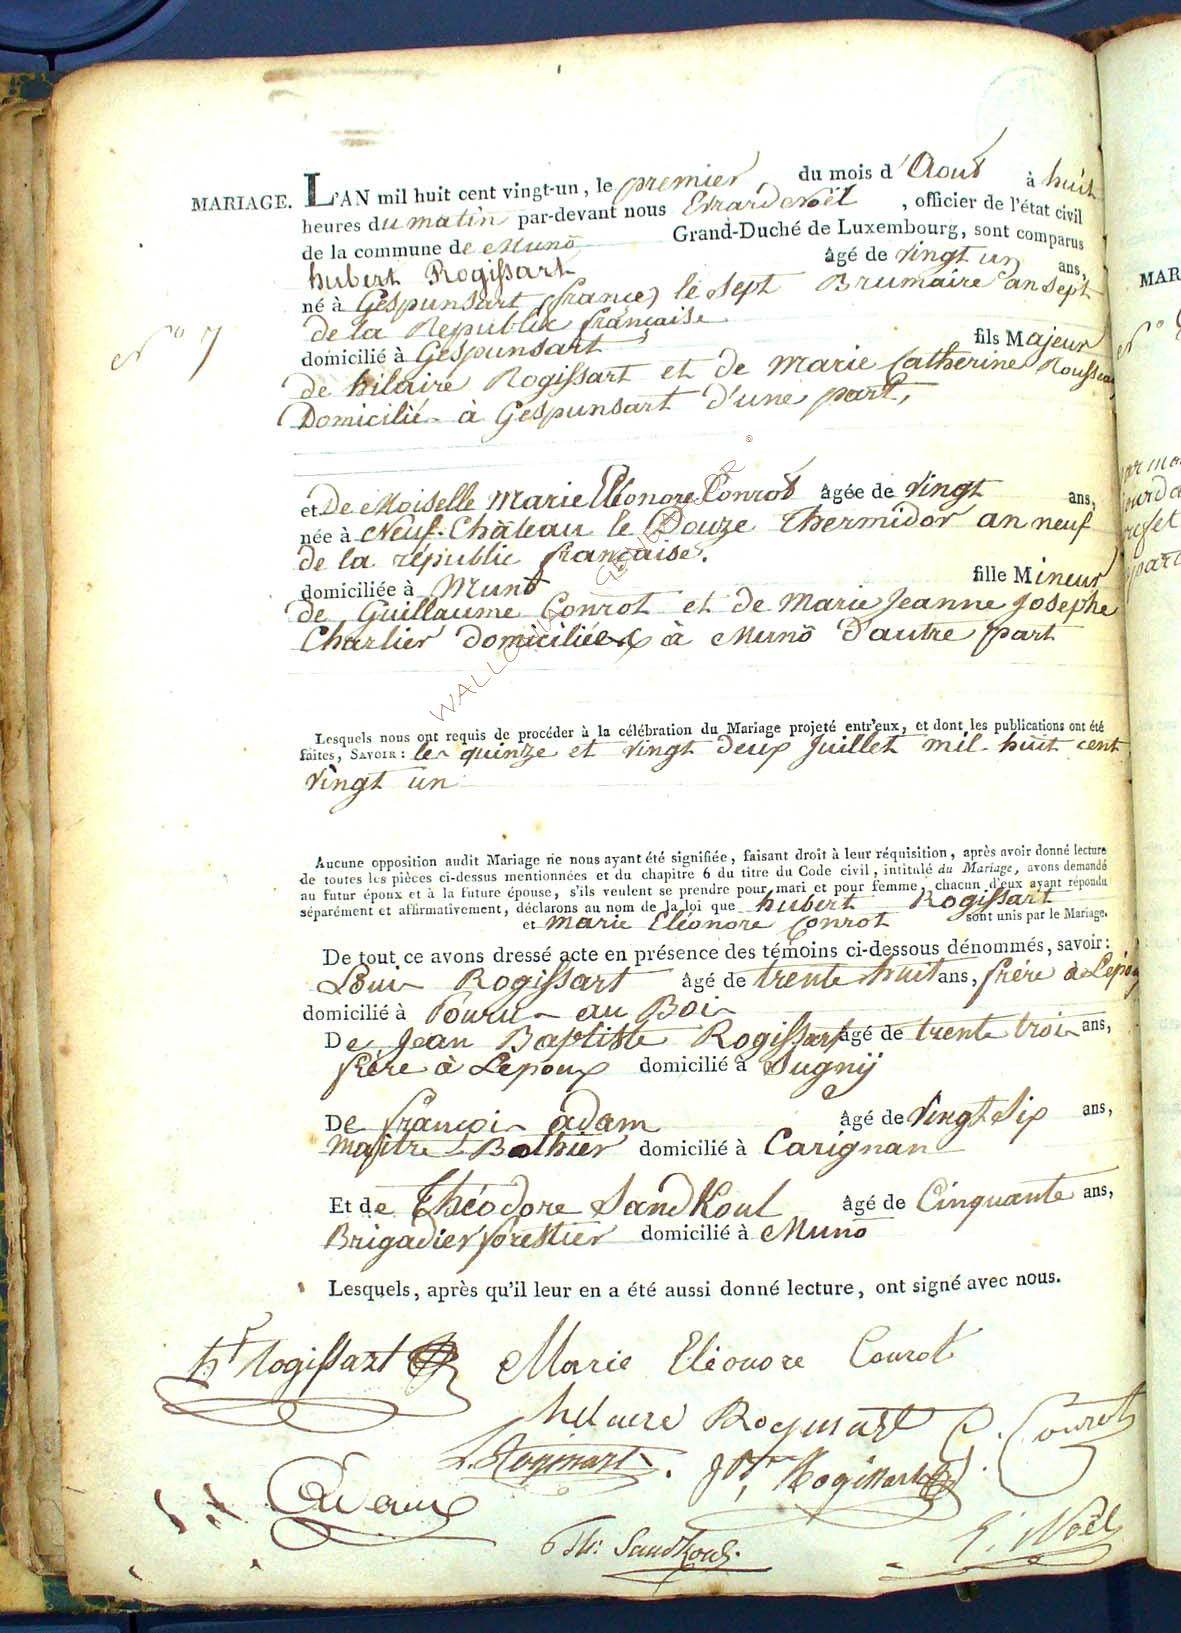 MARIAGE. L'AN mil huit cent vingt-un, le premier du mois d'Aout à huit
heures du matin par-devant nous Evrard Noël, officier de l'état civil
de la commune de Muno Grand-Duché de Luxembourg, sont comparus
hubert Rogissart âgé de vingt un ans,
né à Gespunsart (france) le sept Brumaire an sept
de la Republix française
N° 7
domicilié à Gespunsart fils Majeur
de hilaire Rogissart et de Marie Catherine Rousseau
Domicilié à Gespunsart d'une part,
et De Moiselle Marie Eléonore Conrot âgée de vingt ans,
née à Neuf-Château le Douze Thermidor an neuf
de la république française.
domiciliée à Muno fille Mineur
de Guillaume Conrot et de Marie Jeanne Josephe
Charlier domiciliées à Muno d'autre part
WALLONIA GENEANOR ©
Lesquels nous ont requis de procéder à la célébration du Mariage projeté entr'eux, et dont les publications ont été
faites, SAVOIR : les quinze et vingt deux Juillet mil huit cent
vingt un
Aucune opposition audit Mariage ne nous ayant été signifiée, faisant droit à leur réquisition, après avoir donné lecture
de toutes les pièces ci-dessus mentionnées et du chapitre 6 du titre du Code civil, intitulé du Mariage, avons demandé
au futur époux et à la future épouse, s'ils veulent se prendre pour mari et pour femme, chacun d'eux ayant répondu
séparément et affirmativement, déclarons au nom de la loi que hubert Rogissart
et marie Eléonore Conrot sont unis par le Mariage.
De tout ce avons dressé acte en présence des témoins ci-dessous dénommés, savoir :
Louis Rogissart âgé de trente huit ans, frére à Lépoux
domicilié à Pourus au Bois
De Jean Baptiste Rogissart âgé de trente trois ans,
frére à Lepoux domicilié à Sugnÿ
De françois adam âgé de vingt six ans,
Maître Bothier domicilié à Carignan
Et de Théodore SandKoul âgé de Cinquante ans,
Brigadier forestier domicilié à Muno
Lesquels, après qu'il leur en a été aussi donné lecture, ont signé avec nous.
ht Rogissart Marie Eléonore Conrot
hilaire Rogissart G. Conrot
L. Rogissart. J Bte Rogissart
Adam
Th: Sandkoul. E. Noël
MAR
N°